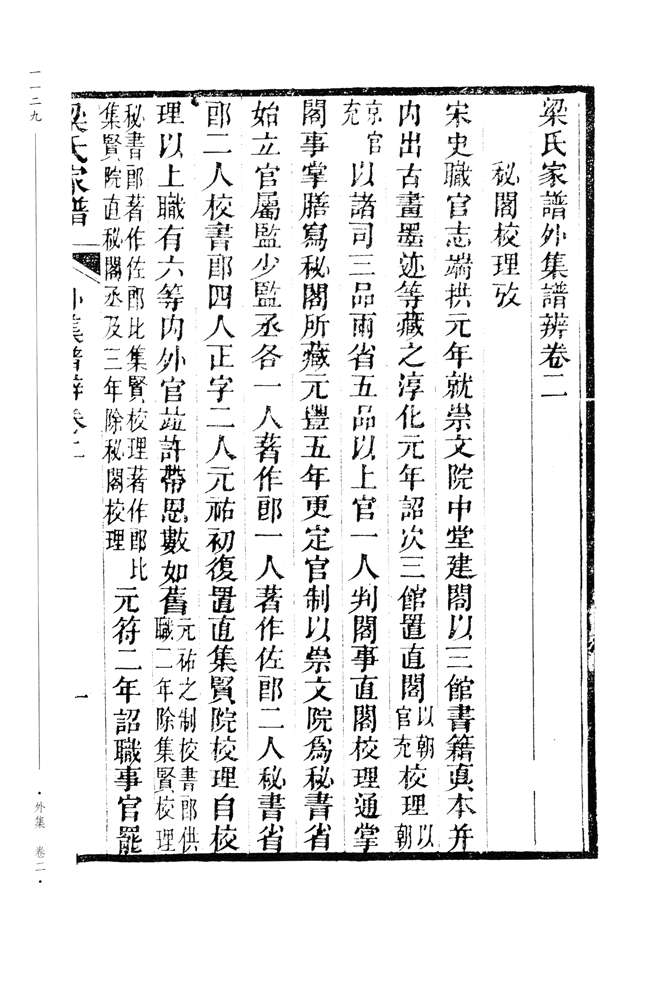 梁氏家譜外集譜辨卷二
秘閣校理攷
宋史職官志端拱元年就崇文院中堂建閣以三館書籍眞本并
內出古畫墨迹等藏之淳化元年詔次三館置直閣以朝官充校理以朝
京官充以諸司三品兩省五品以上官一人判閣事直閣校理通掌
閣事掌膳寫秘閣所藏元豐五年更定官制以崇文院爲秘書省
始立官屬監少監丞各一人著作郎一人著作佐郎二人秘書省
郎二人校書郎四人正字二人元祐初復置直集賢院校理自校
理以上職有六等內外官竝許帶恩數如舊元祐之制校書郎供職二年除集賢校理
秘書郎著作佐郎比集賢校理著作郎比集賢院直秘閣丞及三年除秘閣校理元符二年詔職事官罷
梁氏家譜 外集譜辨卷二 一
一一二九
·外集 卷二·